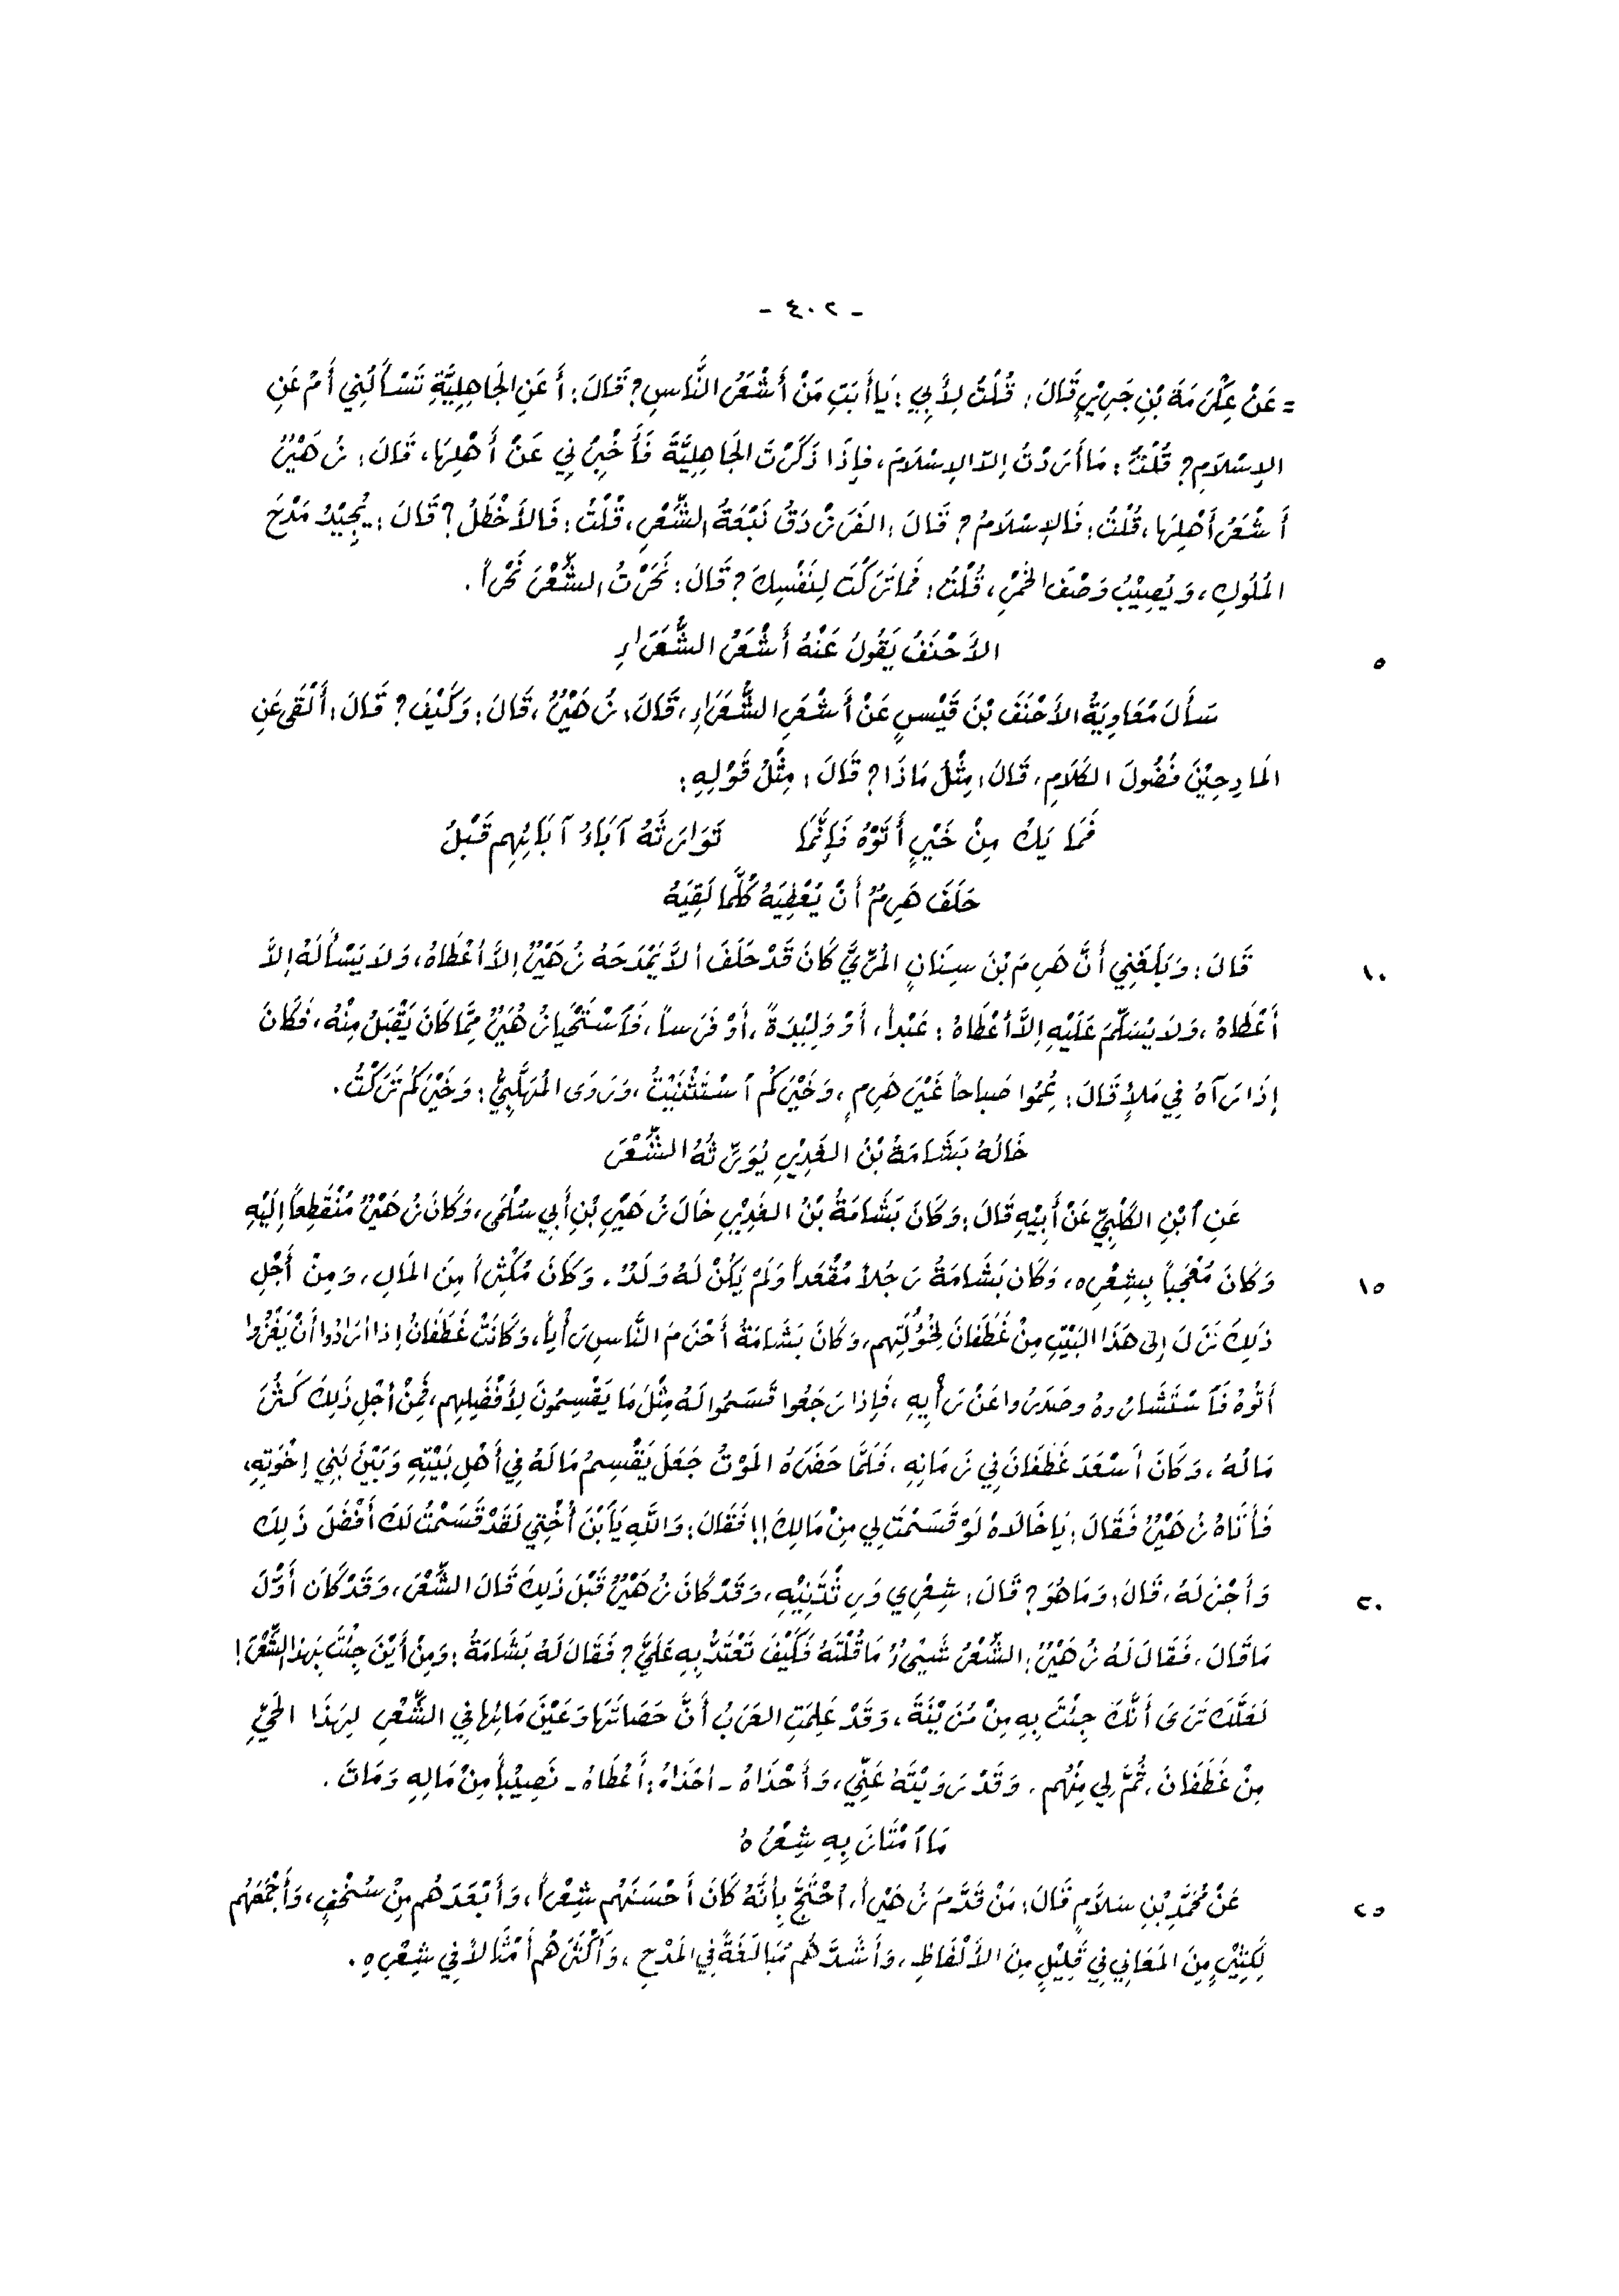 - ٤٠٢ -
= عَنْ عِكْرِمَةَ بْنِ جَرِيْرٍ قَالَ: قُلْتُ لِأَبِي: يَا أَبَتِ مَنْ أَشْعَرُ النَّاسِ؟ قَالَ: أَعَنِ الجَاهِلِيَّةِ تَسْأَلُنِي أَمْ عَنِ
الإِسْلَامِ؟ قُلْتُ: مَا أَرَدْتُ إِلَّا الإِسْلَامَ، فَإِذَا ذَكَرْتَ الجَاهِلِيَّةَ فَأَخْبِرْنِي عَنْ أَهْلِهَا، قَالَ: زُهَيْرٌ
أَشْعَرُ أَهْلِهَا، قُلْتُ: فَالإِسْلَامُ؟ قَالَ: الفَرَزْدَقُ نَبْعَةُ الشِّعْرِ، قُلْتُ: فَالأَخْطَلُ؟ قَالَ: يُجِيْدُ مَدْحَ
المُلُوكِ، وَيُصِيْبُ وَصْفَ الخَمْرِ، قُلْتُ: فَمَا تَرَكْتَ لِنَفْسِكَ؟ قَالَ: نَحَرْتُ الشِّعْرَ نَحْراً.
٥ الأَحْنَفُ يَقُولُ عَنْهُ أَشْعَرُ الشُّعَرَاءِ
سَأَلَ مُعَاوِيَةُ الأَحْنَفَ بْنَ قَيْسٍ عَنْ أَشْعَرِ الشُّعَرَاءِ، قَالَ: زُهَيْرٌ، قَالَ: وَكَيْفَ؟ قَالَ: أَلْقَى عَنِ
المَادِحِيْنَ فُضُولَ الكَلَامِ، قَالَ: مِثْلُ مَاذَا؟ قَالَ: مِثْلُ قَوْلِهِ:
فَمَا يَكُ مِنْ خَيْرٍ أَتَوْهُ فَإِنَّمَا تَوَارَثَهُ آبَاءُ آبَائِهِم قَبْلُ
حَلَفَ هَرِمٌ أَنْ يُعْطِيَهُ كُلَّمَا لَقِيَهُ
١٠ قَالَ: وَبَلَغَنِي أَنَّ هَرِمَ بْنَ سِنَانٍ المُرِّيَّ كَانَ قَدْ حَلَفَ أَلَّا يَمْدَحَهُ زُهَيْرٌ إِلَّا أَعْطَاهُ، وَلَا يَسْأَلَهُ إِلَّا
أَعْطَاهُ، وَلَا يُسَلِّمَ عَلَيْهِ إِلَّا أَعْطَاهُ: عَبْداً، أَوْ وَلِيْدَةً، أَوْ فَرَساً، فَاَسْتَحْيَا زُهَيْرٌ مِمَّا كَانَ يَقْبَلُ مِنْهُ، فَكَانَ
إِذَا رَآهُ فِي مَلَأٍ قَالَ: عِمُوا صَباحاً غَيْرَ هَرِمٍ، وَخَيْرَكُم اَسْتَثْنَيْتُ، وَرَوَى المُهَلَّبِيُّ: وَخَيْرَكُم تَرَكْتُ.
خَالُهُ بَشَامَةُ بْنُ الغَدِيْرِ يُوَرِّثُهُ الشِّعْرَ
عَنِ اَبْنِ الكَلْبِيِّ عَنْ أَبِيْهِ قَالَ: وَكَانَ بَشَامَةُ بْنُ الغَدِيْرِ خَالَ زُهَيْرِ بْنِ أَبِي سُلْمَى، وَكَانَ زُهَيْرٌ مُنْقَطِعاً إِلَيْهِ
١٥ وَكَانَ مُعْجَباً بِشِعْرِهِ، وَكَانَ بَشَامَةُ رَجُلاً مُقْعَداً وَلَمْ يَكُنْ لَهُ وَلَدٌ. وَكَانَ مُكْثِراً مِنَ المَالِ، وَمِنْ أَجْلِ
ذَلِكَ نَزَلَ إِلى هَذَا البَيْتِ مِنْ غَطَفَانَ لِخُؤُلَتِهِم، وَكَانَ بَشَامَةُ أَحْزَمَ النَّاسِ رَأْياً، وَكَانَتْ غَطَفَانُ إِذَا أَرَادُوا أَنْ يَغْزُوا
أَتَوْهُ فَاَسْتَشَارُوهُ وصَدَرُوا عَنْ رَأْيِهِ، فَإِذَا رَجَعُوا قَسَمُوا لَهُ مِثْلَ مَا يَقْسِمُونَ لِأَفْضَلِهِم، فَمِنْ أَجْلِ ذَلِكَ كَثُرَ
مَالُهُ، وَكَانَ أَسْعَدَ غَطَفَانَ فِي زَمَانِهِ، فَلَمَّا حَضَرَهُ المَوْتُ جَعَلَ يَقْسِمُ مَالَهُ فِي أَهْلِ بَيْتِهِ وَبَيْنَ بَنِي إِخْوَتِهِ،
فَأَتَاهُ زُهَيْرٌ فَقَالَ: يَا خَالَاهُ لَوْ قَسَمْتَ لِي مِنْ مَالِكَ!! فَقَالَ: وَاللَّهِ يَا اَبْنَ أُخْتِي لَقَدْ قَسَمْتُ لَكَ أَفْضَلَ ذَلِكَ
٢٠ وَأَجْزَلَهُ، قَالَ: وَمَا هُوَ؟ قَالَ: شِعْرِي وَرِثْتَنِيْهِ، وَقَدْ كَانَ زُهَيْرٌ قَبْلَ ذَلِكَ قَالَ الشِّعْرَ، وَقَدْ كَانَ أَوَّلَ
مَا قَالَ، فَقَالَ لَهُ زُهَيْرٌ: الشِّعْرُ شَيْىءٌ مَا قُلْتَهُ فَكَيْفَ تَعْتَدُّ بِهِ عَلَيَّ؟ فَقَالَ لَهُ بَشَامَةُ: وَمِنْ أَيْنَ جِئْتَ بِهَذا الشِّعْرِ!
لَعَلَّكَ تَرَى أَنَّكَ جِئْتَ بِهِ مِنْ مُزَيْنَةَ، وَقَدْ عَلِمَتِ العَرَبُ أَنَّ حَصَاتَهَا وَعَيْنَ مَائِهَا فِي الشِّعْرِ لِهَذَا الحَيِّ
مِنْ غَطَفَانَ، ثُمَّ لِي مِنْهُم. وَقَدْ رَوَيْتَهُ عَنِّي، وَأَحْذَاهُ - أحْذَاهُ: أَعْطَاهُ - نَصِيْباً مِنْ مَالِهِ وَمَاتَ.
مَا اَمْتَازَ بِهِ شِعْرُهُ
٢٥ عَنْ مُحَمَّدِ بْنِ سَلَّامٍ قَالَ: مَنْ قَدَّمَ زُهَيْراً، اُحْتَجَّ بِأَنَّهُ كَانَ أَحْسَنَهُم شِعْراً، وَأَبْعَدَهُم مِنْ سُخْفٍ، وَأَجْمَعَهُم
لِكَثِيْرٍ مِنَ المَعَانِي فِي قَلِيْلٍ مِنَ الأَلْفَاظِ، وَأَشَدَّهُم مُبَالَغَةً فِي المَدْحِ، وَأَكْثَرَهُم أَمْثَالاً فِي شِعْرِهِ.